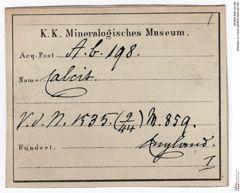 1
K. K. Mineralogisches Museum.
Acq. Post A. b. 198.
Name Calcit
V. d. N. 1535. (2/44) M. 859.
Fundort. England.
I